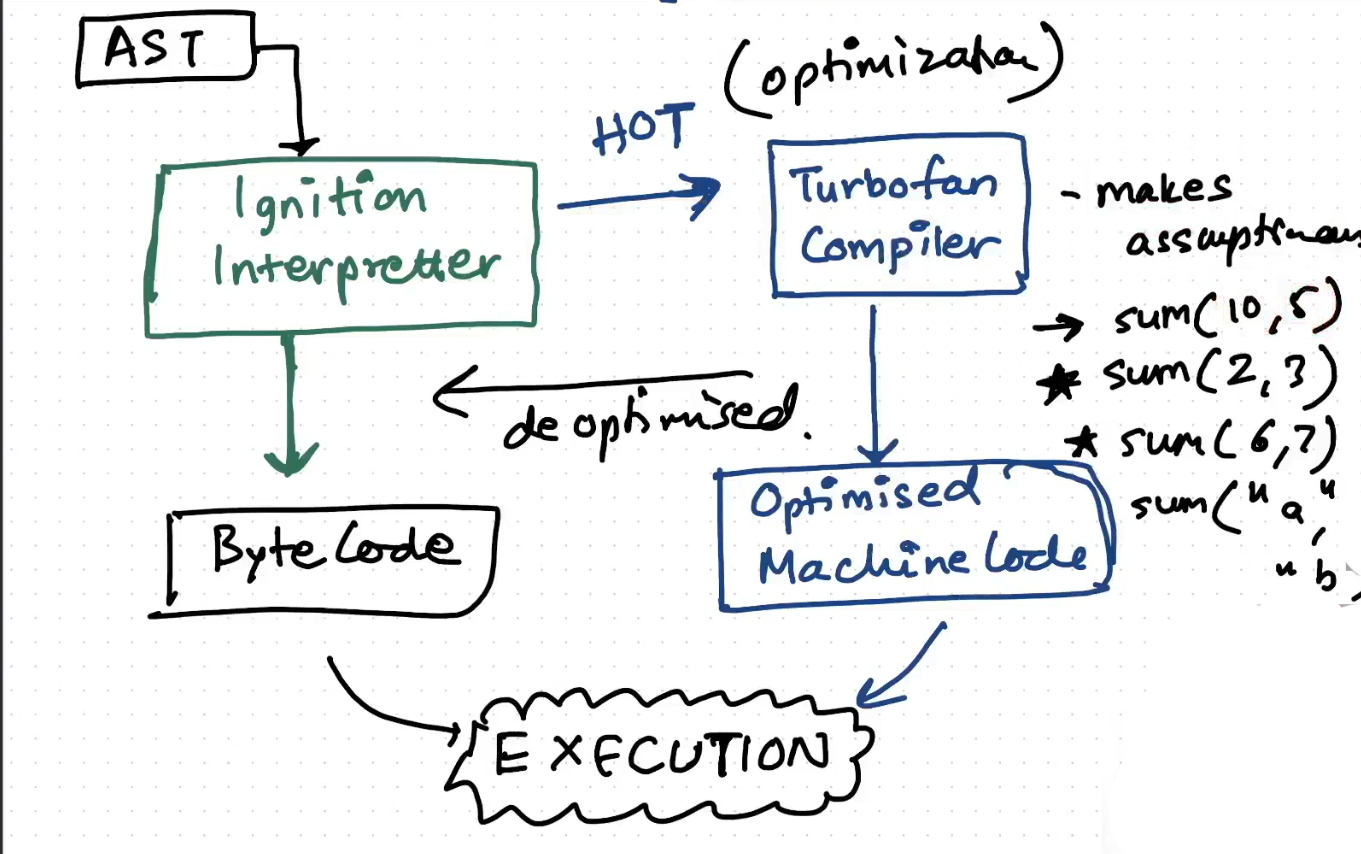 AST
(optimization)
HOT
Ignition
Interpretter
Turbofan
Compiler
- makes
assumptions
→ sum(10,5)
★ sum(2,3)
★ sum(6,7)
sum("a",
"b
deoptimised.
Optimised
Machine Code
Byte Code
EXECUTION